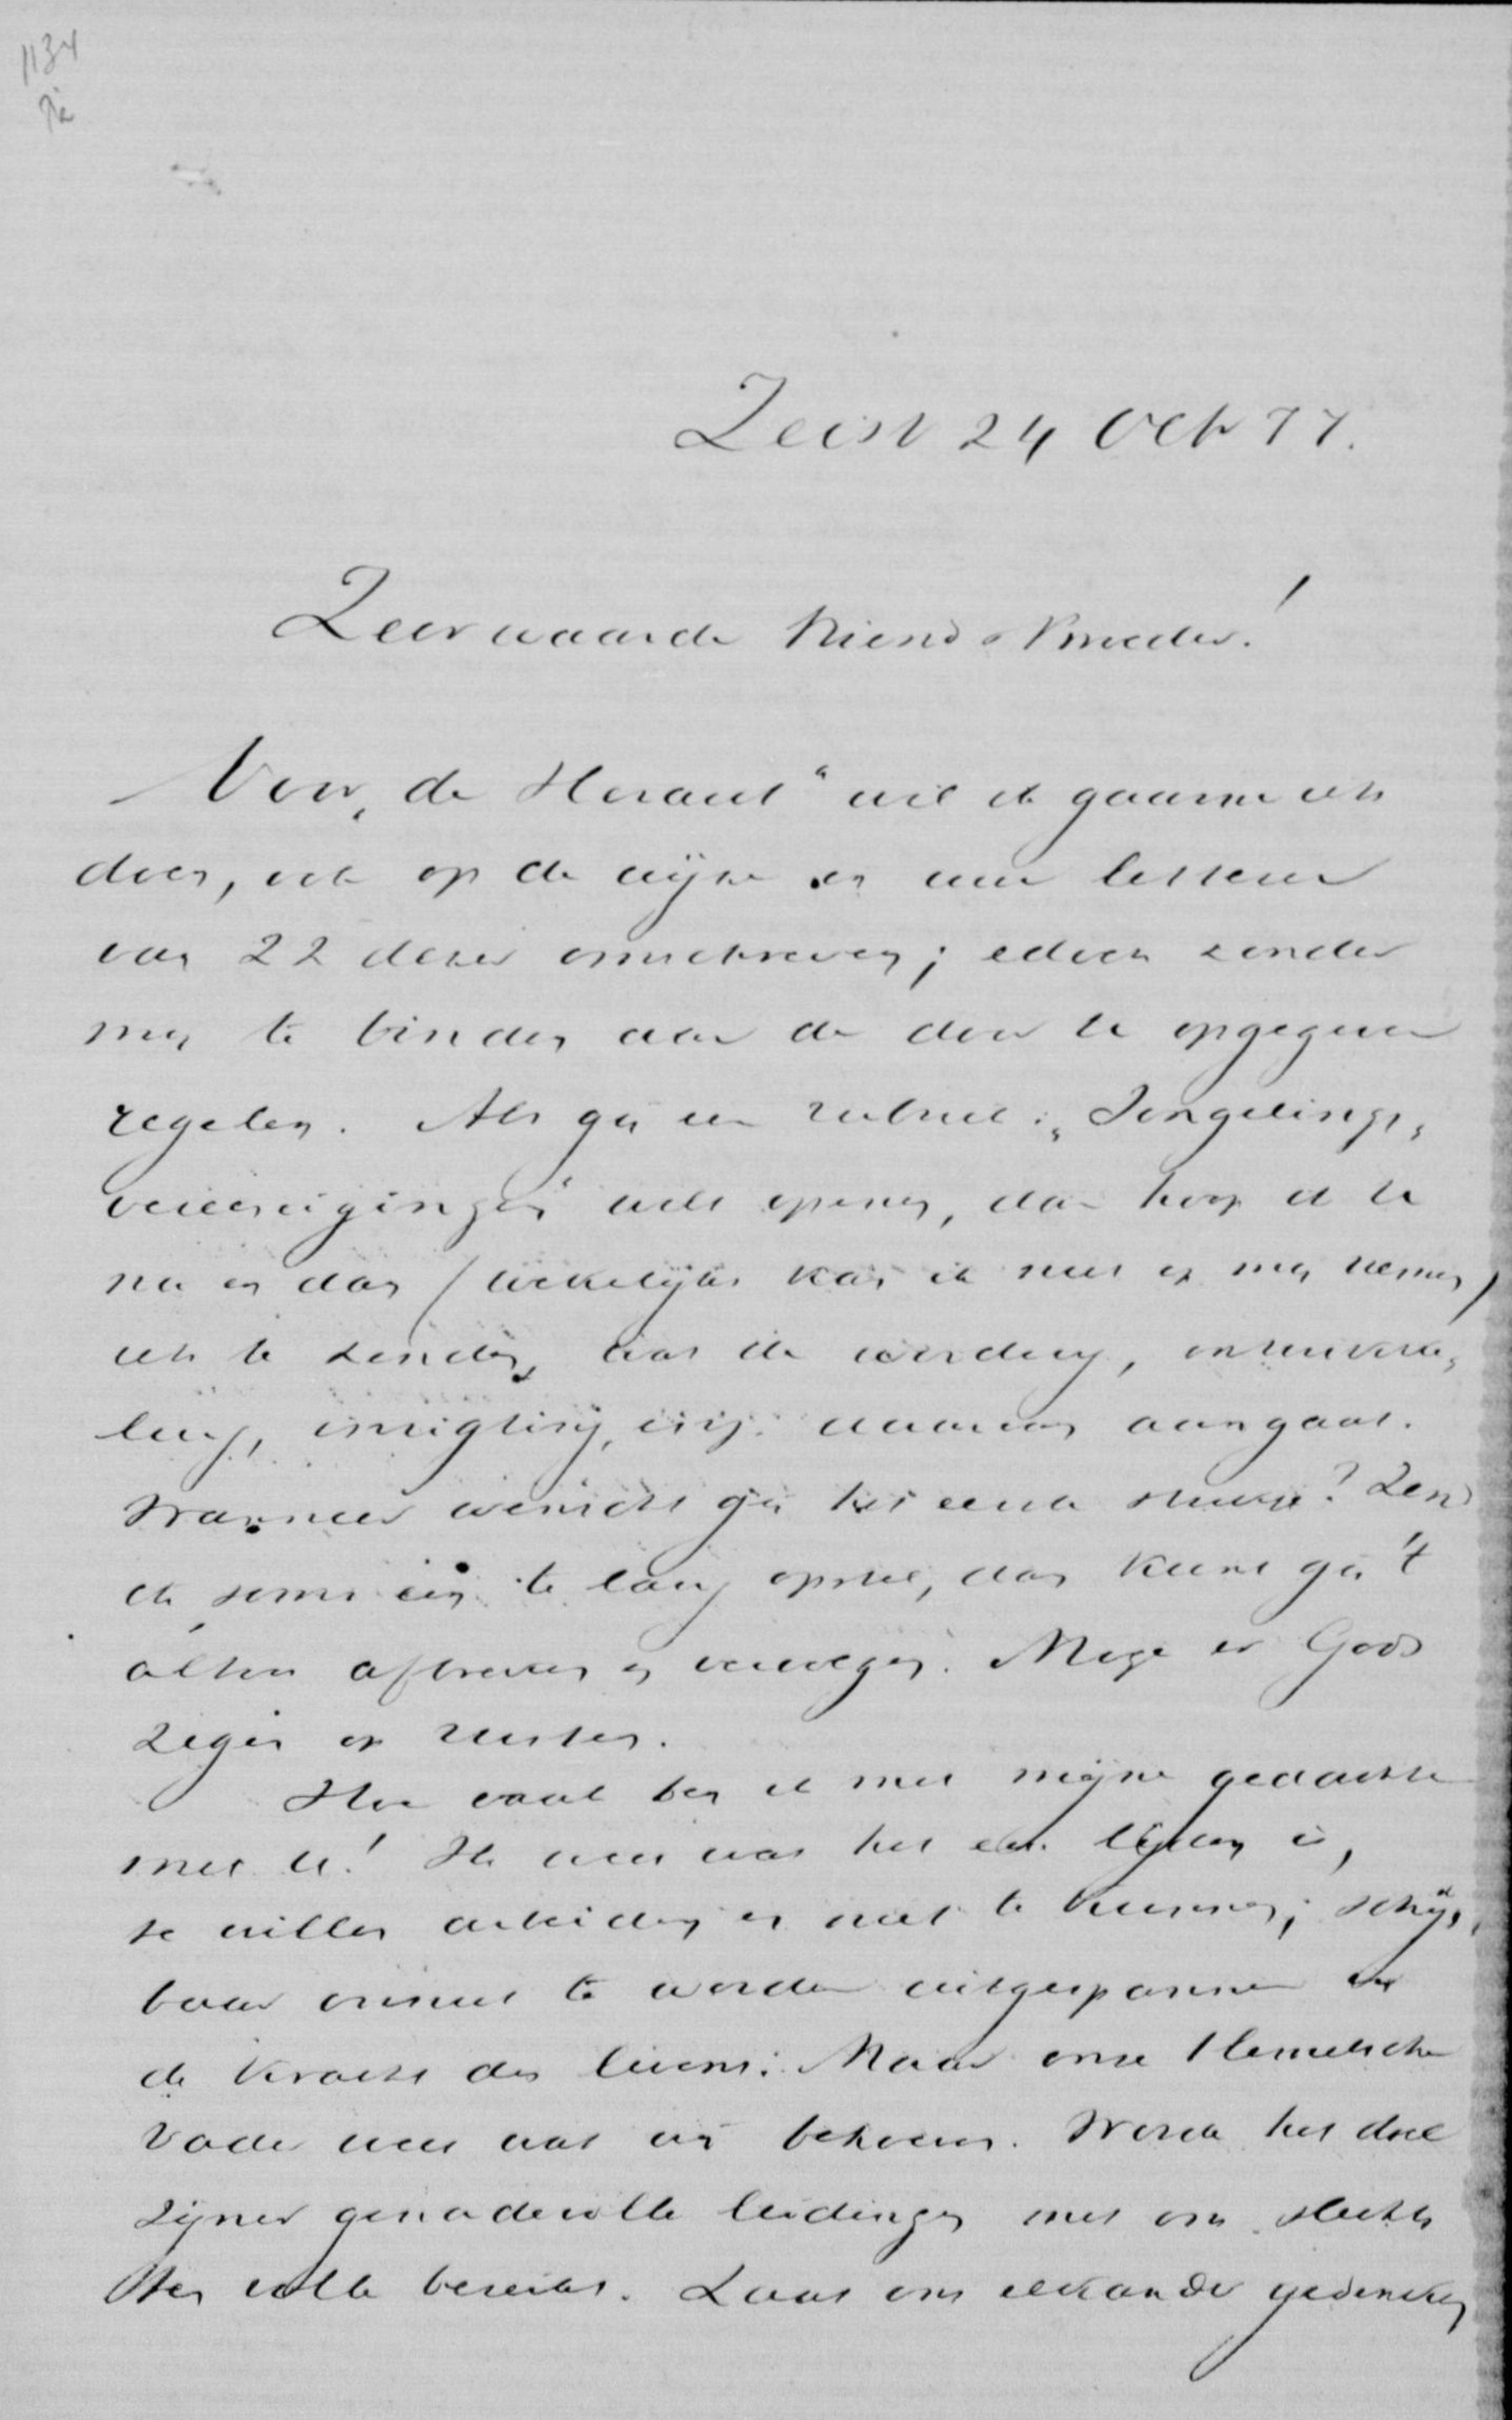 1134
Zeist 24 Oct 77.
Zeer waarde Vriend & Broeder!
Voor „de Heraut" wil ik gaarne iets
doen, ook op de wijze en uwe letteren
van 22 dezer omschreven; edoch zonder
mij te binden aan de door U opgegeven
regelen. Als gij een rubriek: „Jongelings„
vereenigingen" wilt openen, dan hoop ik U
nu en dan (wekelijks kan ik niet op mij nemen)
iets te zenden, wat de wording, ontwikke„
ling, inrigting, enz. daarvan aangaat.
Wanneer wenscht gij het eerste stukje? Zend
ik soms een te lang opstel, dan kunt gij 't
altoos afbreken en vervolgen. Moge er Gods
zegen op rusten.
Hoe vaak ben ik met mijne gedachten
met U! Ik weet wat het een lijden is,
te willen arbeiden en niet te kunnen; schijn„
baar onnut te worden uitgespannen in
de kracht des levens. Maar onze Hemelsche
Vader weet wat wij behoeven. Worde het doel
zijner genadevolle leidingen met ons slechts
ten volle bereikt. Laat ons elkander gedenken